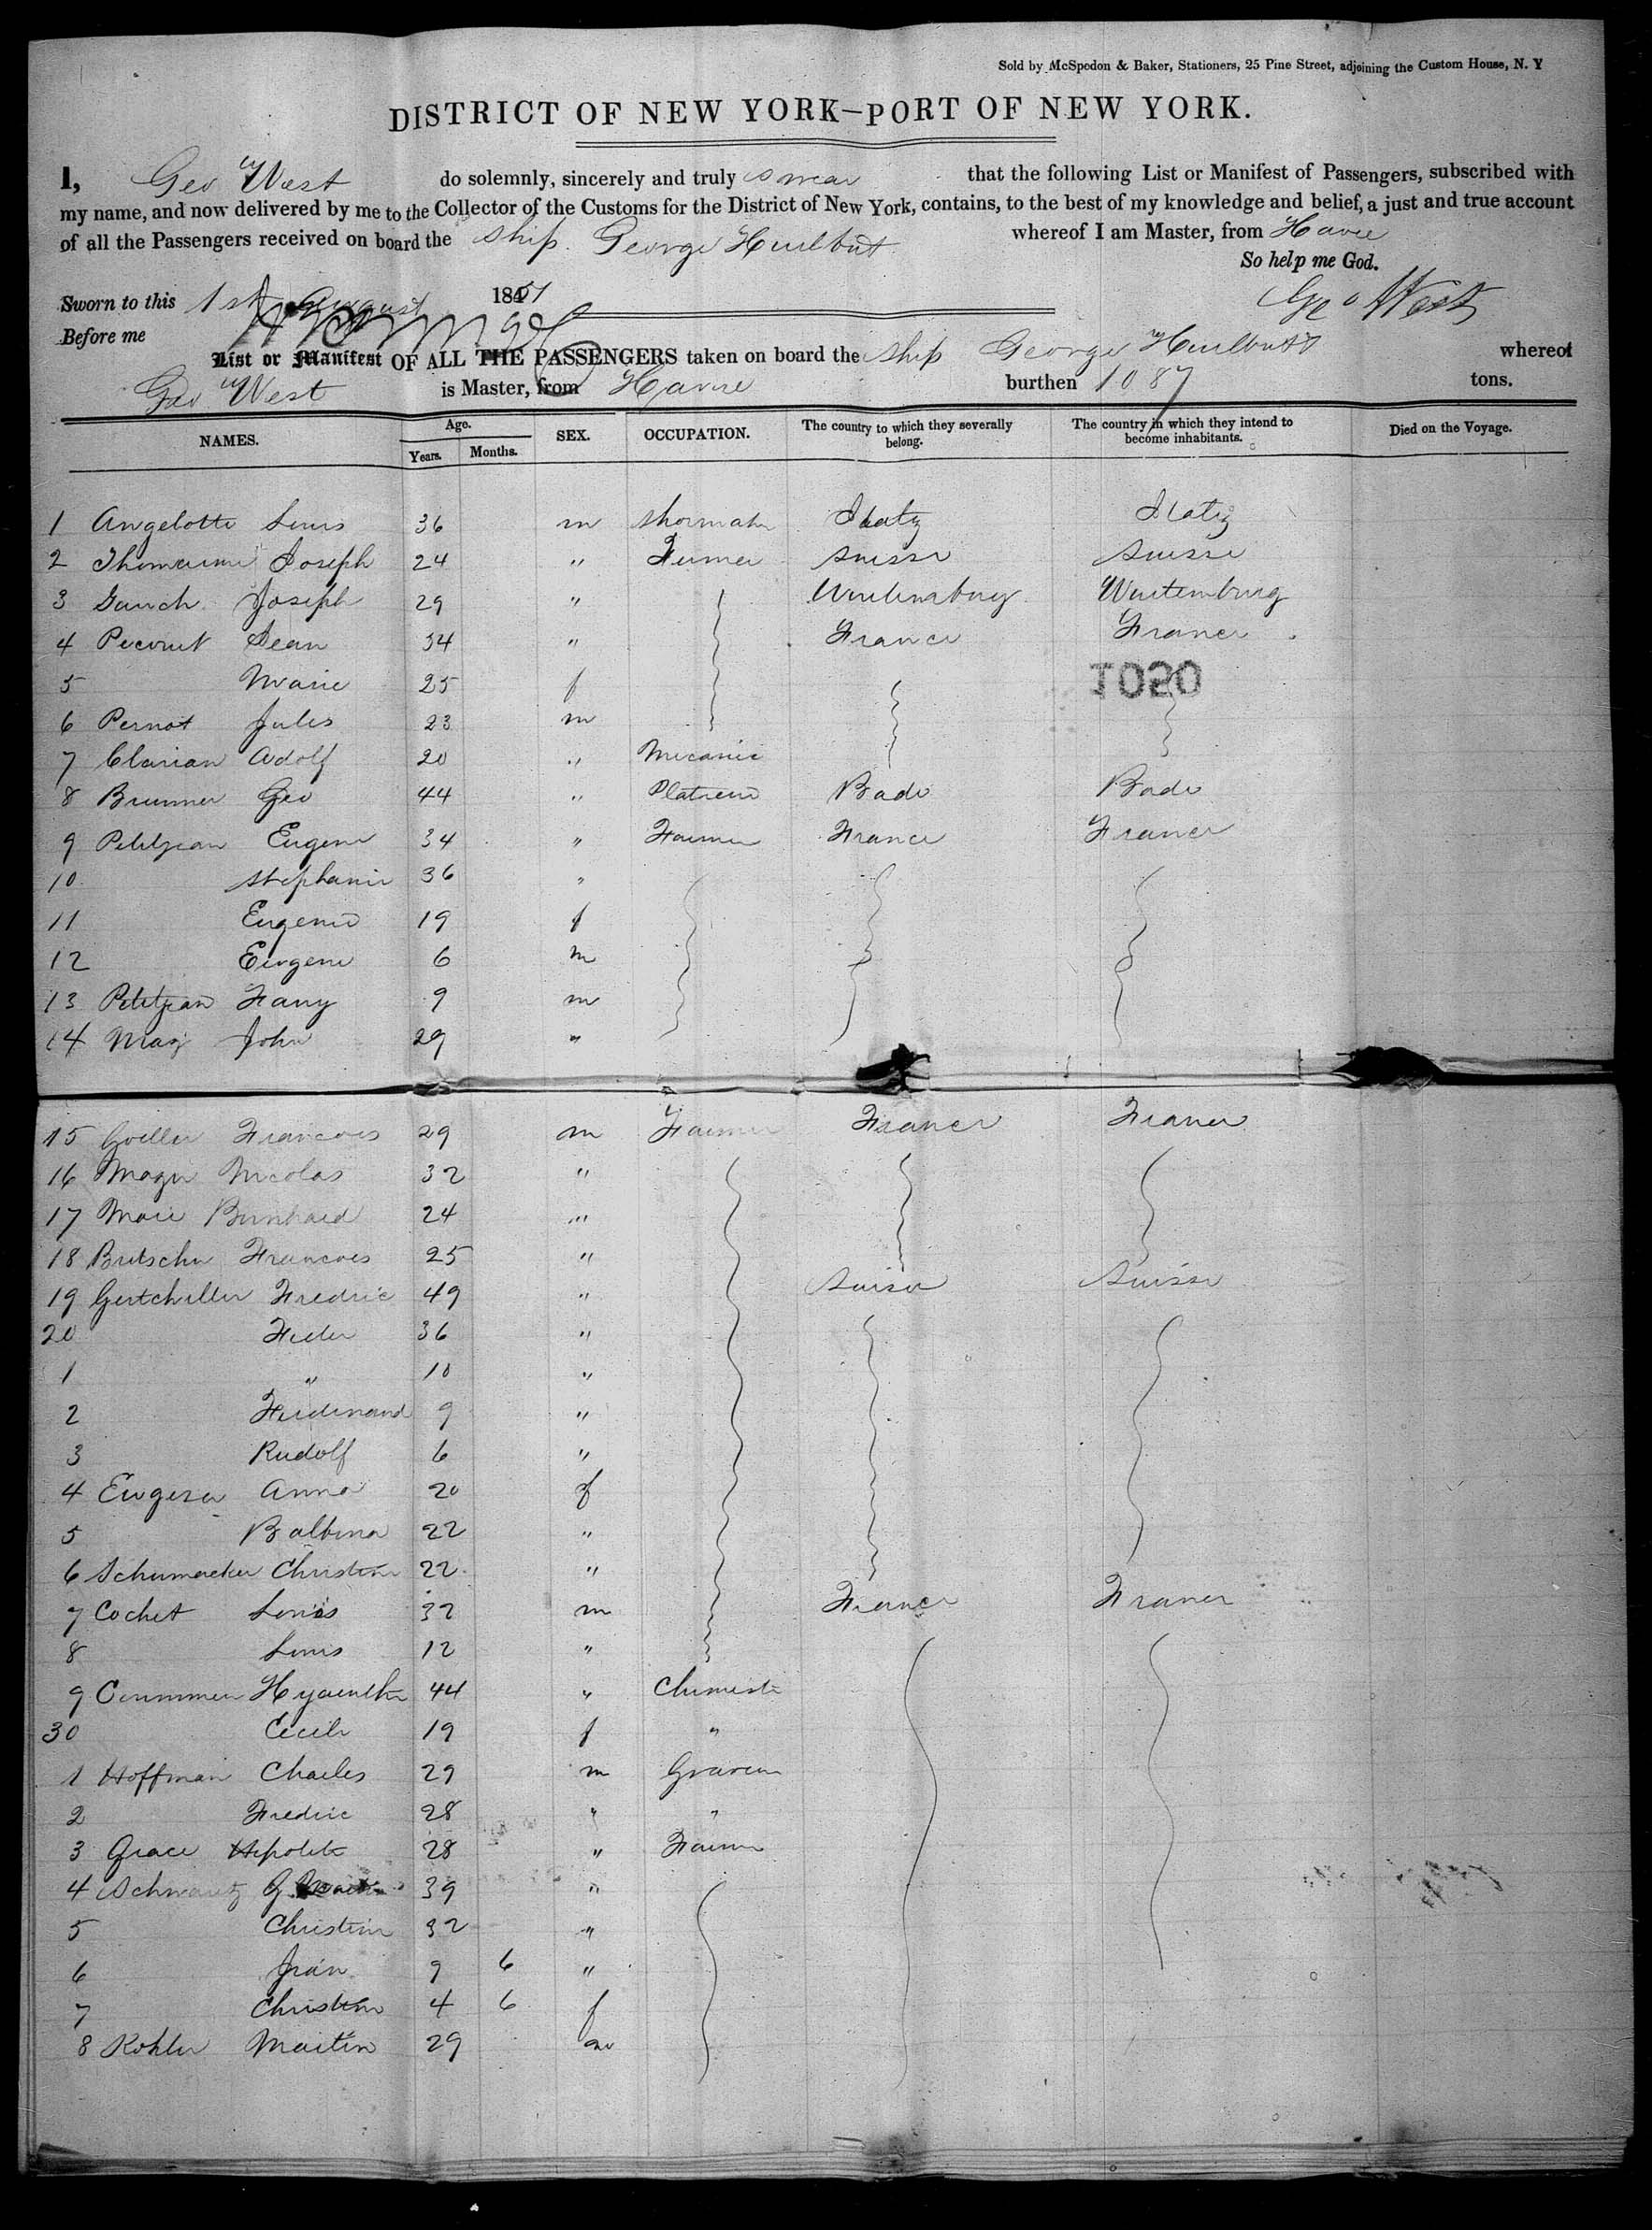 Sold by McSpedon & Baker, Stationers, 25 Pine Street, adjoining the Custom House, N. Y
DISTRICT OF NEW YORK—PORT OF NEW YORK.
I, Geo W West do solemnly, sincerely and truly swear that the following List or Manifest of Passengers, subscribed with
my name, and now delivered by me to the Collector of the Customs for the District of New York, contains, to the best of my knowledge and belief, a just and true account
of all the Passengers received on board the ship George Hurlbut whereof I am Master, from Havre
So help me God.
Sworn to this 1st August 1851 Geo W West
Before me
List or Manifest OF ALL THE PASSENGERS taken on board the ship George Hurlbutt whereof
Geo W West is Master, from Havre burthen 1087 tons.
NAMES. Age. Years. Months. SEX. OCCUPATION. The country to which they severally belong. The country in which they intend to become inhabitants. Died on the Voyage.
1 Angelotte Louis 36 m Italy Italy
2 Joseph 24 " Suisse Suisse
3 Gauch Joseph 29 " Wurtemburg Wurtemburg
4 Pecourt Jean 34 " France France
5 Marie 25 f
1020
6 Pernot Jules 23 m
7 Clarian Adolf 20 " Mecanic
8 Brunner Geo 44 " Bade Bade
9 Petitjean Eugene 34 " Farmer France France
10 Stephanie 36 "
11 Eugenie 19 f
12 Eugene 6 m
13 Petitjean Fany 9 m
14 May John 29 "
15 Goeller Francois 29 m Farmer France France
16 Nicolas 32 "
17 Bernhard 24 "
18 Butscher Francois 25 "
19 Fredric 49 " Suisse Suisse
20 36 "
1 " 10 "
2 Ferdinand 9 "
3 Rudolf 6 "
4 Anna 20 f
5 Balbina 22 "
6 Schumacker Christine 22 "
7 Cochet Louis 32 m France France
8 Louis 12 "
9 Hyacinthe 44 " Chimiste
30 Cecile 19 f "
1 Hoffman Charles 29 m Graveur
2 Fredric 28 " "
3 Grace Hipolite 28 " Farmer
4 Schwartz G. 39 "
5 Christine 32 "
6 Jean 9 6 "
7 Christine 4 6 f
8 Kohler Martin 29 m